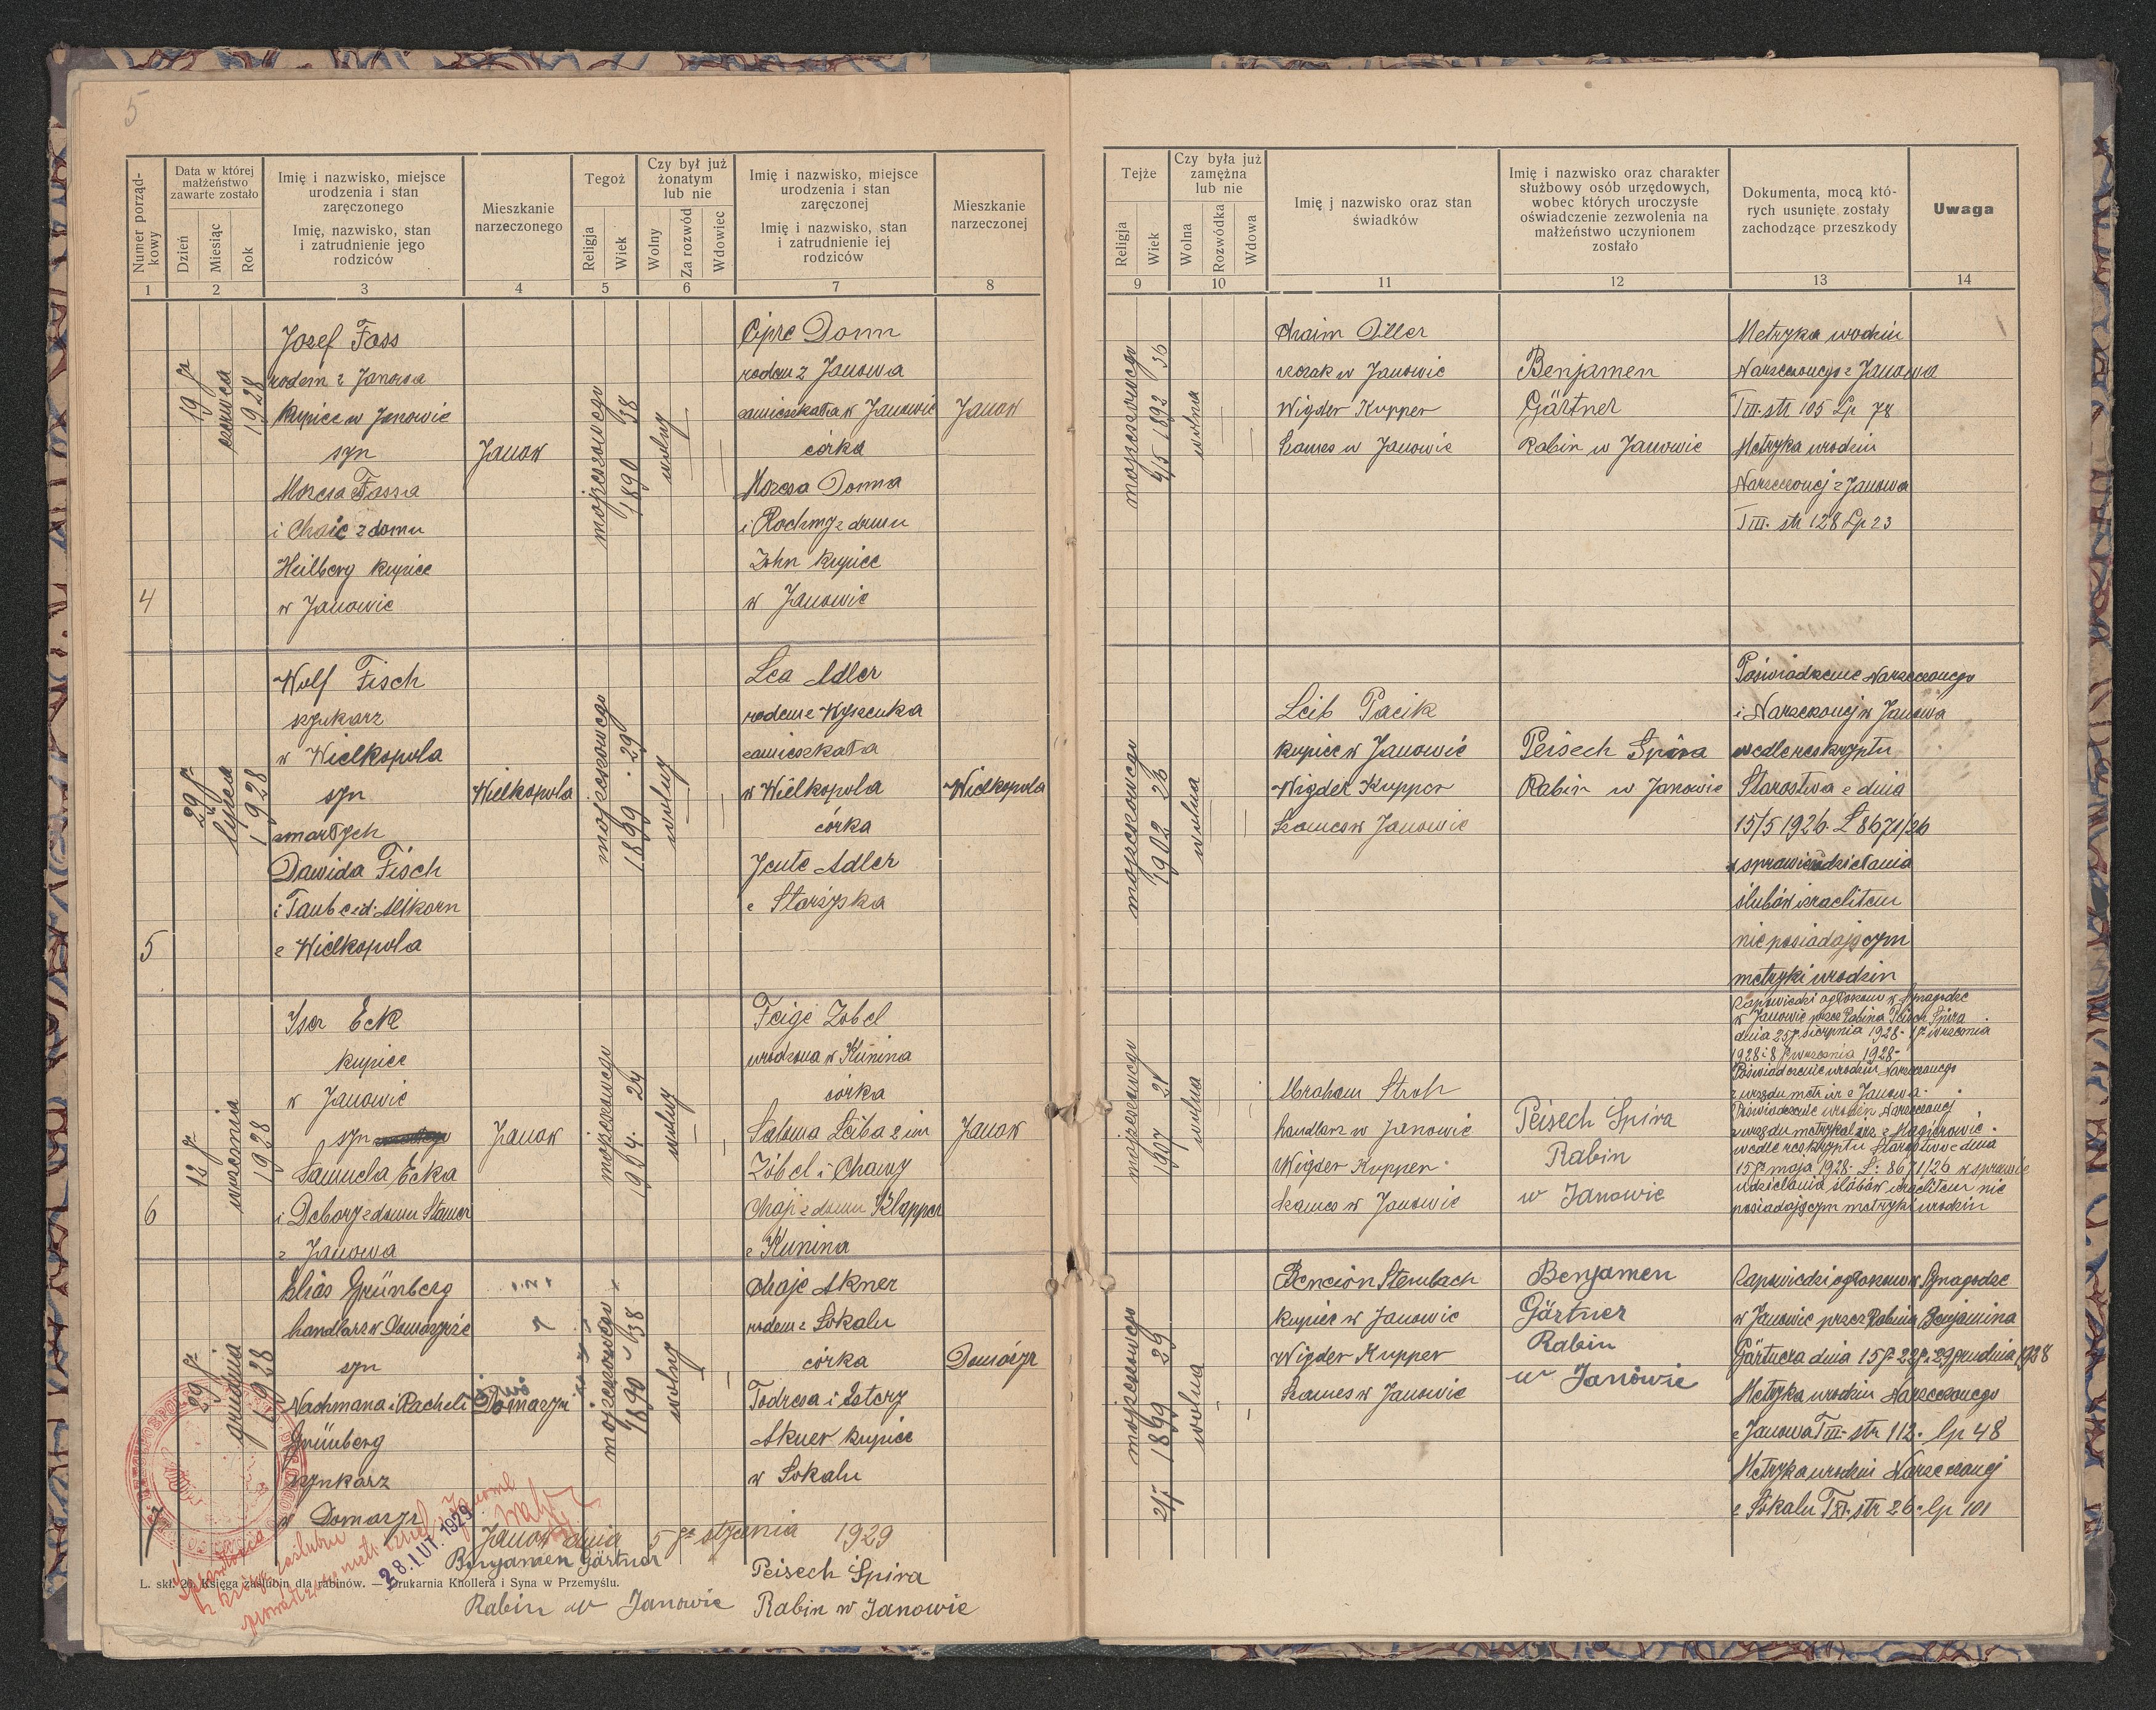 5
Numer porządkowy
Data w której małżeństwo zawarte zostało
Dzień
Miesiąc
Rok
Imię i nazwisko, miejsce urodzenia i stan zaręczonego
Imię, nazwisko, stan i zatrudnienie jego rodziców
Mieszkanie narzeczonego
Tegoż
Religja
Wiek
Czy był już żonatym lub nie
Wolny
Za rozwód
Wdowiec
Imię i nazwisko, miejsce urodzenia i stan zaręczonej
Imię i nazwisko, stan i zatrudnienie iej rodziców
Mieszkanie narzeczonej
1 2 3 4 5 6 7 8
Tejże
Religja
Wiek
Czy była już zamężna lub nie
Wolna
Rozwódka
Wdowa
Imię j nazwisko oraz stan świadków
Imię i nazwisko oraz charakter służbowy osób urzędowych, wobec których uroczyste oświadczenie zezwolenia na małżeństwo uczynionem zostało
Dokumenta, mocą których usunięte zostały zachodzące przeszkody
Uwaga
9 10 11 12 13 14
4
19 go
czerwca
1928
Jozef Fass
rodem z Janowa
Kupiec w Janowie
syn
Mozesa Fassa
i Chaie z domu
Heilberg kupiec
w Janowie
Janow
mojżeszowego
1890 38
wolny
Cipre Dorn
rodem z Janowa
zamieszkała w Janowie
córka
Mozesa Dorna
i Rochmy z domu
Zohn kupiec
w Janowie
Janow
mojżeszowego
4/5 1892 36
wolna
Chaim Diller
rzezak w Janowie
Wigder Kupper
Szames w Janowie
Benjamen
Gärtner
Rabin w Janowie
Metryka urodzin
Narzeczonego z Janowa
T III. str 105 Lp 78
Metryka urodzin
Narzeczonej z Janowa
T III. str 128 Lp 23
5
29 go
lipca
1928
Wolf Fisch
szynkarz
w Wielkopola
syn
zmarłych
Dawida Fisch
i Taube z d. Altkorn
z Wielkopola
Wielkopola
mojżeszowego
1899. 29
wolny
Lea Adler
rodem z Wyszenka
zamieszkała
w Wielkopola
córka
Jente Adler
z Starzyska
Wielkopola
mojżeszowego
1902 26
wolna
Leib Pacik
kupiec w Janowie
Wigder Kupper
Szames w Janowie
Peisech Spira
Rabin w Janowie
Poświadczenie Narzeczonego
i Narzeczonej w Janowa
wedle reskryptu
Starostwa z dnia
15/5 1926. L 8671/26
w sprawie udzielania
ślubów izraelitom
nie posiadającym
metryki urodzin
6
12 go
września
1928
Iser Eck
kupiec
w Janowie
syn
Samuela Ecka
i Debory z domu Stamer
z Janowa
Janow
mojżeszowego
1904. 24
wolny
Feige Zobel
urodzona w Kunina
córka
Saloma Leiba 2 im
Zobel i Chawy
Chaj z domu Klapper
z Kunina
Janow
mojżeszowego
1907 21
wolna
Abraham Stroh
handlarz w Janowie
Wigder Kupper
Szames w Janowie
Peisech Spira
Rabin
w Janowie
Zapowiedzi ogłoszone w Synagodze
w Janowie przez Rabina Peisech Spira
dnia 25go sierpnia 1928. 1go września
1928 i 8go września 1928.
Poświadczenie urodzin Narzeczonego
z urzędu metr izr z Janowa.
Poświadczenie urodzin Narzeczonej
z urzędu metrykal izr z Magierowie.
wedle reskryptu Starostwo z dnia
15go maja 1928. L: 8671/26 w sprawie
udzielania ślubów izraelitom nie
posiadającym metryki urodzin
7
29 go
grudnia
1928
Elias Grünberg
handlarz w Domazyrze
syn
Nachmana i Racheli
Grünberg
szynkarz
w Domazyr
Domazyr
mojżeszowego
1890 38
wolny
Chaje Akner
rodem z Sokalu
córka
Todresa i Estery
Akner kupiec
w Sokalu
Domazyr
mojżeszowego
21/5 1899 29
wolna
Bencion Stembach
kupiec w Janowie
Wigder Kupper
Szames w Janowie
Benjamen
Gärtner
Rabin
w Janowie
Zapowiedzi ogłoszone w Synagodze
w Janowie przez Rabina Benjamina
Gärtnera dnia 15go 22go i 29 grudnia 1928
Metryka urodzin Narzeczonego
z Janowa T III. str 112. lp 48
Metryka urodzin Narzeczonej
z Sokalu T XI. str 26. lp 101
Janow dnia 5 go stycznia 1929
Benjamen Gärtner
Rabin w Janowie
Peisech Spira
Rabin w Janowie
28. LUT. 1929
L. skł. 20. Księga zaślubin dla rabinów. — Drukarnia Knollera i Syna w Przemyślu.